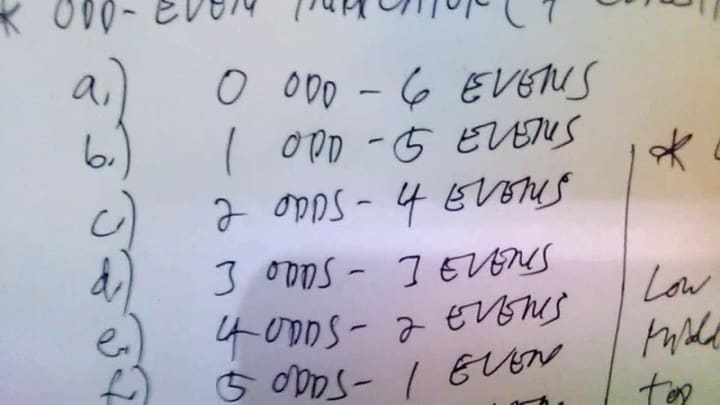 * ODD-EVEN INDICATOR (7
a.) 0 ODD - 6 EVENS
b.) 1 ODD - 5 EVENS
c.) 2 ODDS - 4 EVENS
d.) 3 ODDS - 3 EVENS
e.) 4 ODDS - 2 EVENS
f.) 5 ODDS - 1 EVEN
*
Low
top